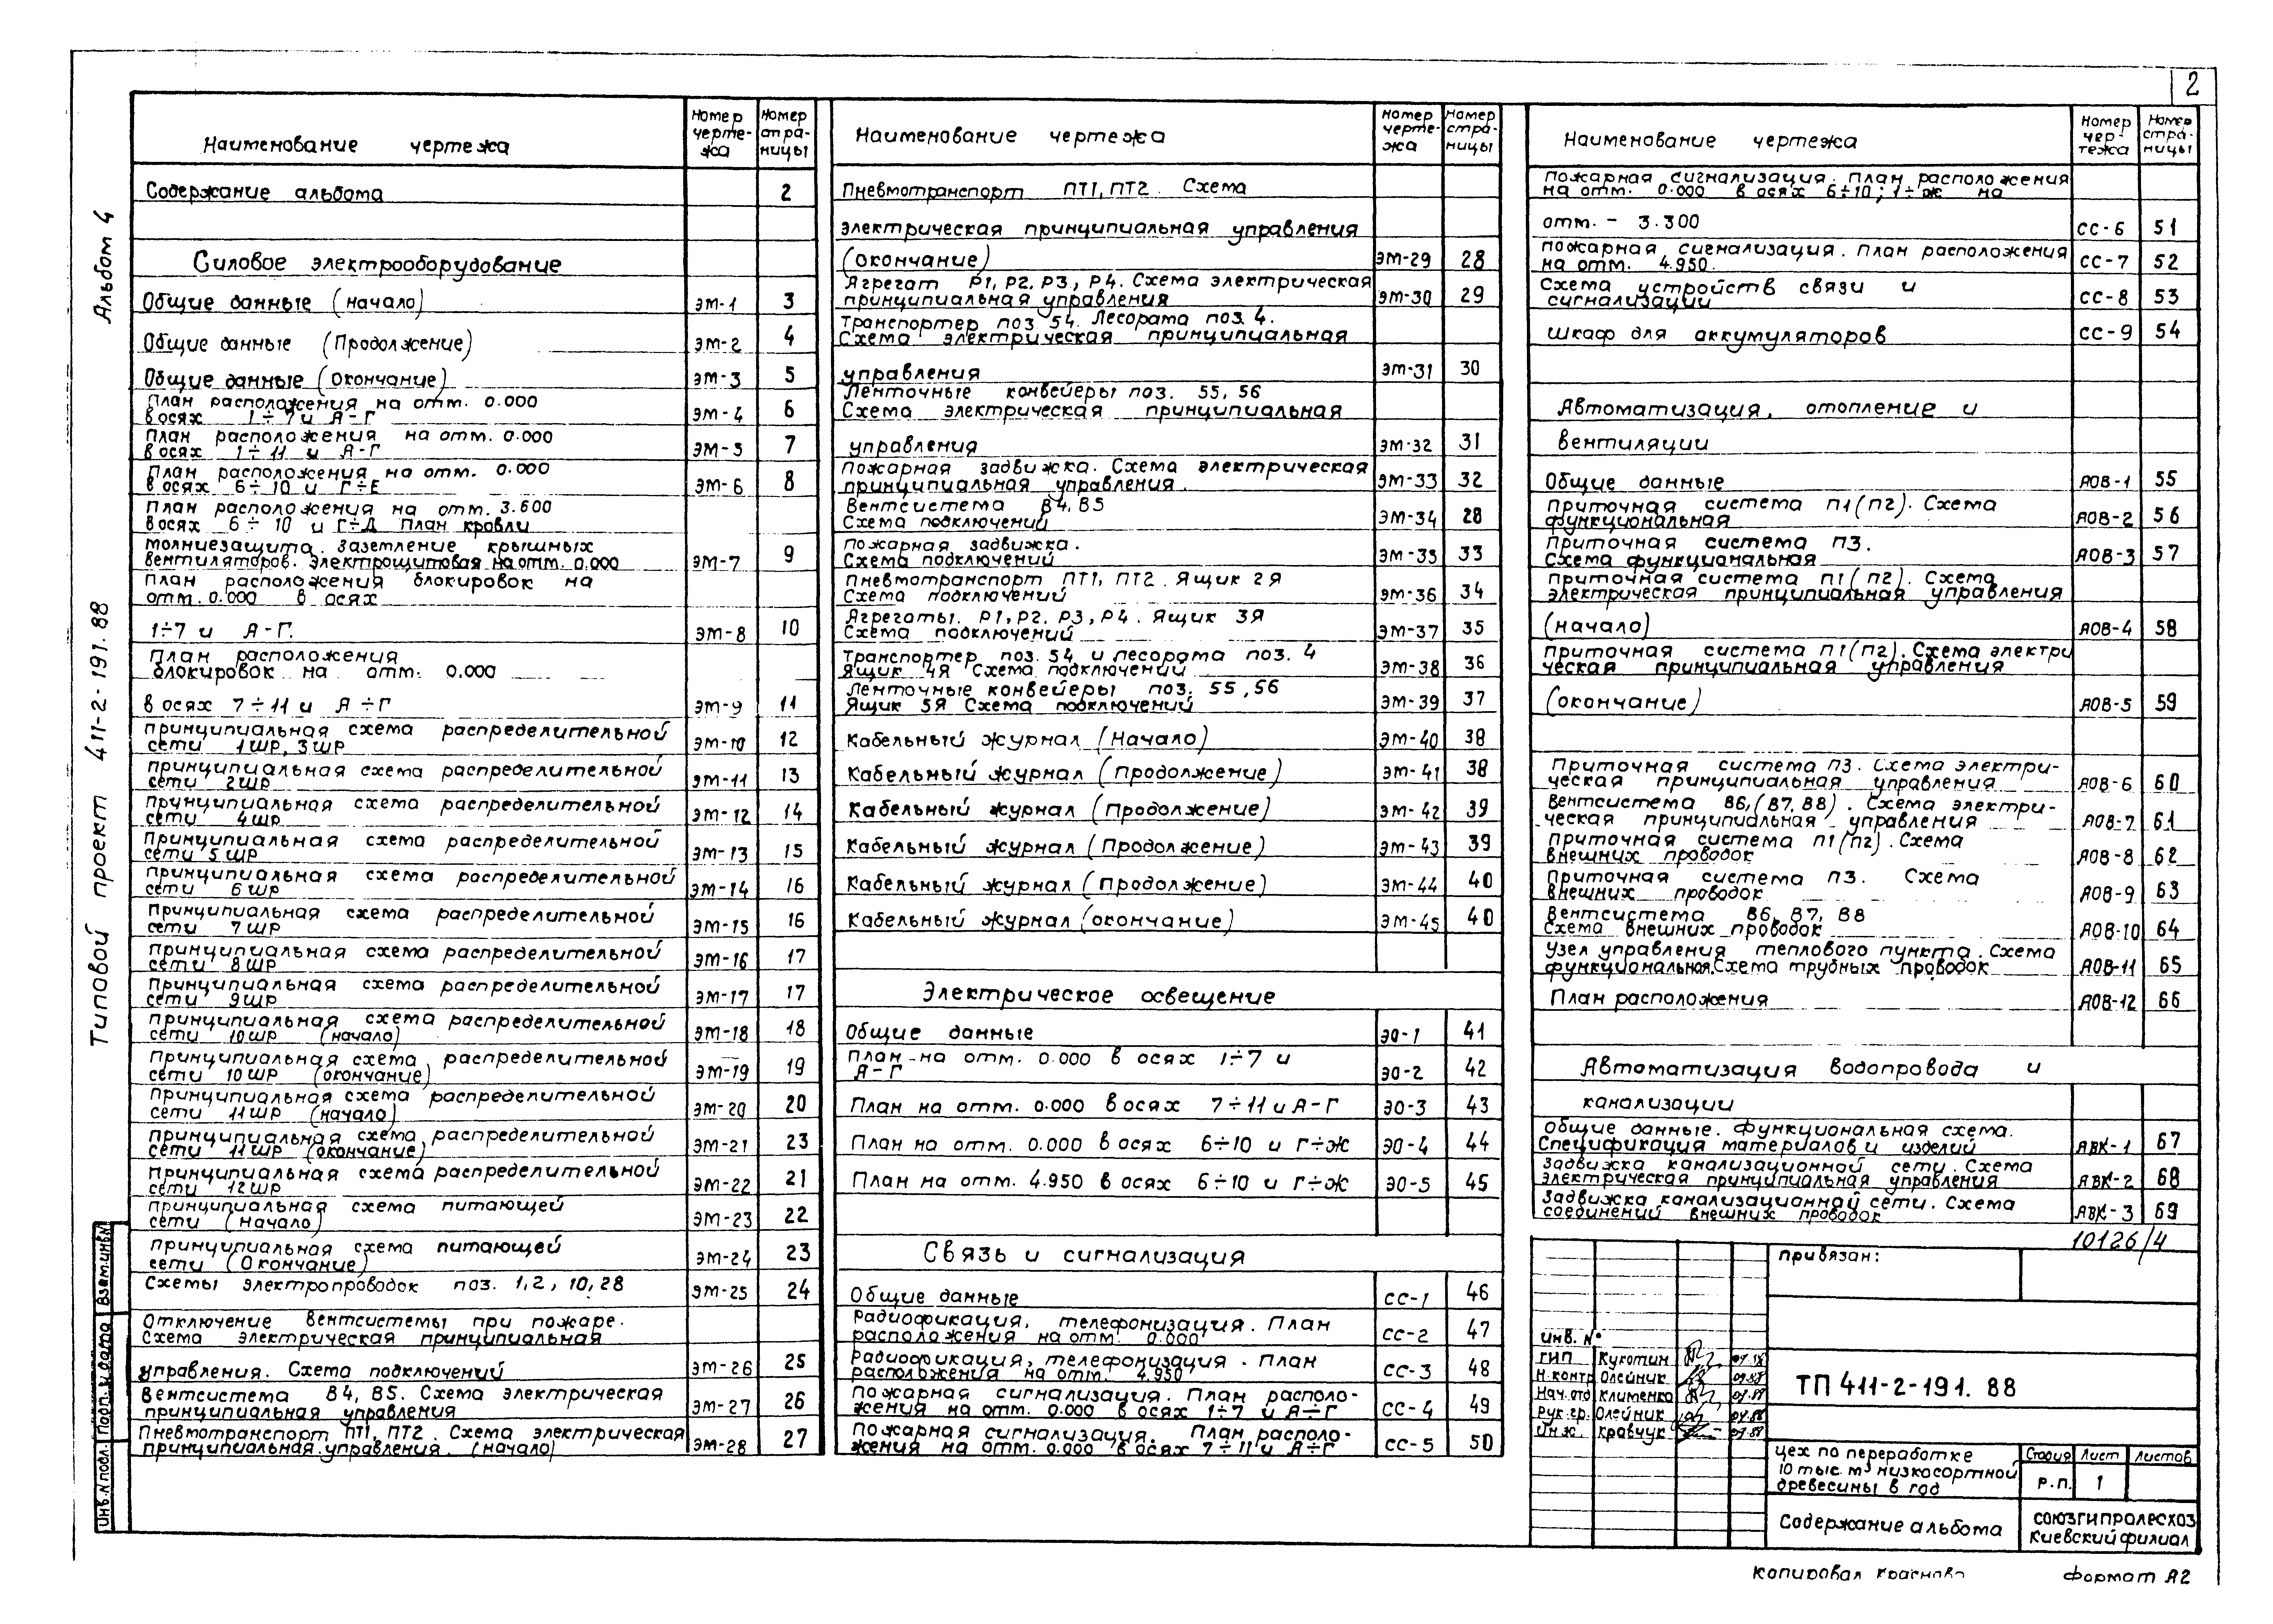 2
Альбом 4
Типовой проект 411-2-191.88
Наименование чертежа Номер чертежа Номер страницы
Содержание альбома 2
Силовое электрооборудование
Общие данные (начало) ЭМ-1 3
Общие данные (Продолжение) ЭМ-2 4
Общие данные (окончание) ЭМ-3 5
План расположения на отм. 0.000
в осях 1÷7 и А-Г ЭМ-4 6
План расположения на отм. 0.000
в осях 1÷11 и А-Г ЭМ-5 7
План расположения на отм. 0.000
в осях 6÷10 и Г÷Е ЭМ-6 8
План расположения на отм. 3.600
в осях 6÷10 и Г÷Д План кровли
молниезащита. Заземление крышных
вентиляторов. Электрощитовая на отм. 0.000 ЭМ-7 9
План расположения блокировок на
отм. 0.000 в осях
1÷7 и А-Г. ЭМ-8 10
План расположения
блокировок на отм. 0.000
в осях 7÷11 и А÷Г ЭМ-9 11
принципиальная схема распределительной
сети 1ШР, 3ШР ЭМ-10 12
принципиальная схема распределительной
сети 2ШР ЭМ-11 13
принципиальная схема распределительной
сети 4ШР ЭМ-12 14
Принципиальная схема распределительной
сети 5ШР ЭМ-13 15
принципиальная схема распределительной
сети 6ШР ЭМ-14 16
принципиальная схема распределительной
сети 7ШР ЭМ-15 16
принципиальная схема распределительной
сети 8ШР ЭМ-16 17
принципиальная схема распределительной
сети 9ШР ЭМ-17 17
принципиальная схема распределительной
сети 10ШР (начало) ЭМ-18 18
принципиальная схема распределительной
сети 10ШР (окончание) ЭМ-19 19
принципиальная схема распределительной
сети 11ШР (начало) ЭМ-20 20
принципиальная схема распределительной
сети 11ШР (окончание) ЭМ-21 23
принципиальная схема распределительной
сети 12ШР ЭМ-22 21
принципиальная схема питающей
сети (начало) ЭМ-23 22
принципиальная схема питающей
сети (Окончание) ЭМ-24 23
Схемы электропроводок поз. 1,2, 10, 28 ЭМ-25 24
Отключение вентсистемы при пожаре.
Схема электрическая принципиальная
управления. Схема подключений ЭМ-26 25
Вентсистема В4, В5. Схема электрическая
принципиальная управления ЭМ-27 26
Пневмотранспорт ПТ1, ПТ2. Схема электрическая
принципиальная управления. (начало) ЭМ-28 27
Наименование чертежа Номер чертежа Номер страницы
Пневмотранспорт ПТ1, ПТ2. Схема
электрическая принципиальная управления
(окончание) ЭМ-29 28
Агрегат Р1, Р2, Р3, Р4. Схема электрическая
принципиальная управления ЭМ-30 29
Транспортер поз. 54. Лесорама поз. 4.
Схема электрическая принципиальная
управления ЭМ-31 30
Ленточные конвейеры поз. 55, 56
Схема электрическая принципиальная
управления ЭМ-32 31
Пожарная задвижка. Схема электрическая
принципиальная управления. ЭМ-33 32
Вентсистема В4, В5
Схема подключений ЭМ-34 28
пожарная задвижка.
Схема подключений ЭМ-35 33
Пневмотранспорт ПТ1, ПТ2. Ящик 2Я
Схема подключений ЭМ-36 34
Агрегаты. Р1, Р2, Р3, Р4. Ящик 3Я
Схема подключений ЭМ-37 35
Транспортер поз. 54 и лесорама поз. 4
Ящик 4Я Схема подключений ЭМ-38 36
Ленточные конвейеры поз. 55, 56
Ящик 5Я Схема подключений ЭМ-39 37
Кабельный журнал (Начало) ЭМ-40 38
Кабельный журнал (Продолжение) ЭМ-41 38
Кабельный журнал (Продолжение) ЭМ-42 39
Кабельный журнал (Продолжение) ЭМ-43 39
Кабельный журнал (Продолжение) ЭМ-44 40
Кабельный журнал (окончание) ЭМ-45 40
Электрическое освещение
Общие данные ЭО-1 41
План на отм. 0.000 в осях 1÷7 и
А-Г ЭО-2 42
План на отм. 0.000 в осях 7÷11 и А-Г ЭО-3 43
План на отм. 0.000 в осях 6÷10 и Г÷Ж ЭО-4 44
План на отм. 4.950 в осях 6÷10 и Г÷Ж ЭО-5 45
Связь и сигнализация
Общие данные СС-1 46
Радиофикация, телефонизация. План
расположения на отм. 0.000 СС-2 47
Радиофикация, телефонизация. План
расположения на отм. 4.950 СС-3 48
Пожарная сигнализация. План располо-
жения на отм. 0.000 в осях 1÷7 и А÷Г СС-4 49
Пожарная сигнализация. План располо-
жения на отм. 0.000 в осях 7÷11 и А÷Г СС-5 50
Наименование чертежа Номер чертежа Номер страницы
Пожарная сигнализация. План расположения
на отм. 0.000 в осях 6÷10; 1÷Ж на
отм. - 3.300 СС-6 51
пожарная сигнализация. План расположения
на отм. 4.950. СС-7 52
Схема устройств связи и
сигнализации СС-8 53
шкаф для аккумуляторов СС-9 54
Автоматизация, отопление и
вентиляции
Общие данные АОВ-1 55
Приточная система П1(П2). Схема
функциональная АОВ-2 56
Приточная система П3.
Схема функциональная АОВ-3 57
Приточная система П1(П2). Схема
электрическая принципиальная управления
(начало) АОВ-4 58
приточная система П1(П2). Схема электри
ческая принципиальная управления
(окончание) АОВ-5 59
Приточная система П3. Схема электри-
ческая принципиальная управления АОВ-6 60
Вентсистема В6, (В7, В8). Схема электри-
ческая принципиальная управления АОВ-7 61
Приточная система П1(П2). Схема
внешних проводок АОВ-8 62
Приточная система П3. Схема
внешних проводок АОВ-9 63
Вентсистема В6, В7, В8
Схема внешних проводок АОВ-10 64
Узел управления теплового пункта. Схема
функциональная. Схема трубных проводок АОВ-11 65
План расположения АОВ-12 66
Автоматизация водопровода и
канализации
Общие данные. Функциональная схема.
Спецификация материалов и изделий АВК-1 67
Задвижка канализационной сети. Схема
электрическая принципиальная управления АВК-2 68
Задвижка канализационной сети. Схема
соединений внешних проводок АВК-3 69
10126/4
привязан:
инв. №
ГИП Кукотин
Н.контр Олейник
Нач.отд Клименко
Рук.гр. Олейник
Инж. Кравчук
ТП 411-2-191. 88
цех по переработке
10 тыс. м³ низкосортной
древесины в год
Стадия Лист Листов
Р.П. 1
Содержание альбома
СОЮЗГИПРОЛЕСХОЗ
Киевский филиал
Инв.№ подл. Подп. и дата Взам.инв.№
Копировал Краснова
Формат А2